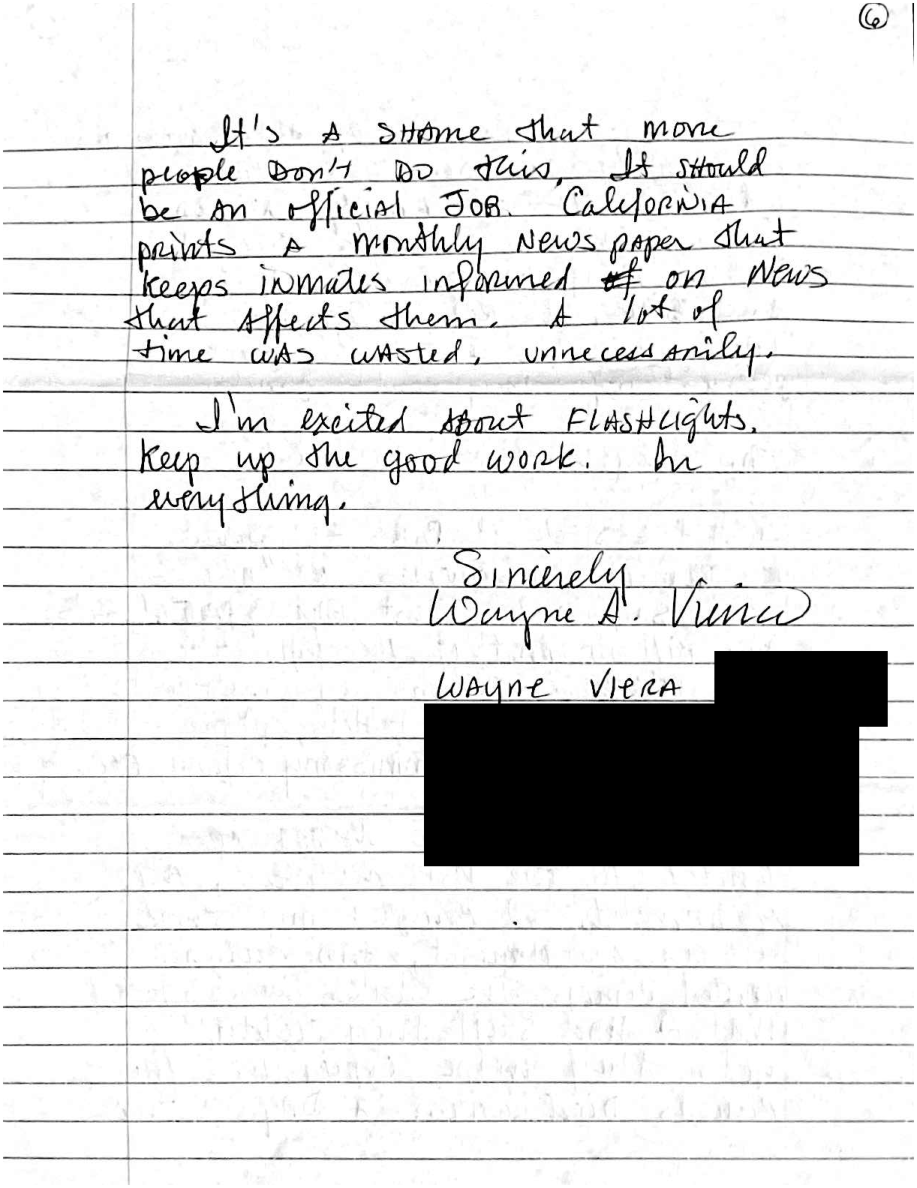 6
It's A SHAme that more
people Don't DO this. It should
be An officiAl JOB. CalifoRNiA
prints A monthly News pApeR that
keeps inmates informed of on News
that Affects them. A lot of
time wAs wAsted, unnecessArily.
I'm excited About FLASHLights.
Keep up the good woRk. In
everything.
Sincerely
Wayne A. Viera
WAyne VIeRA